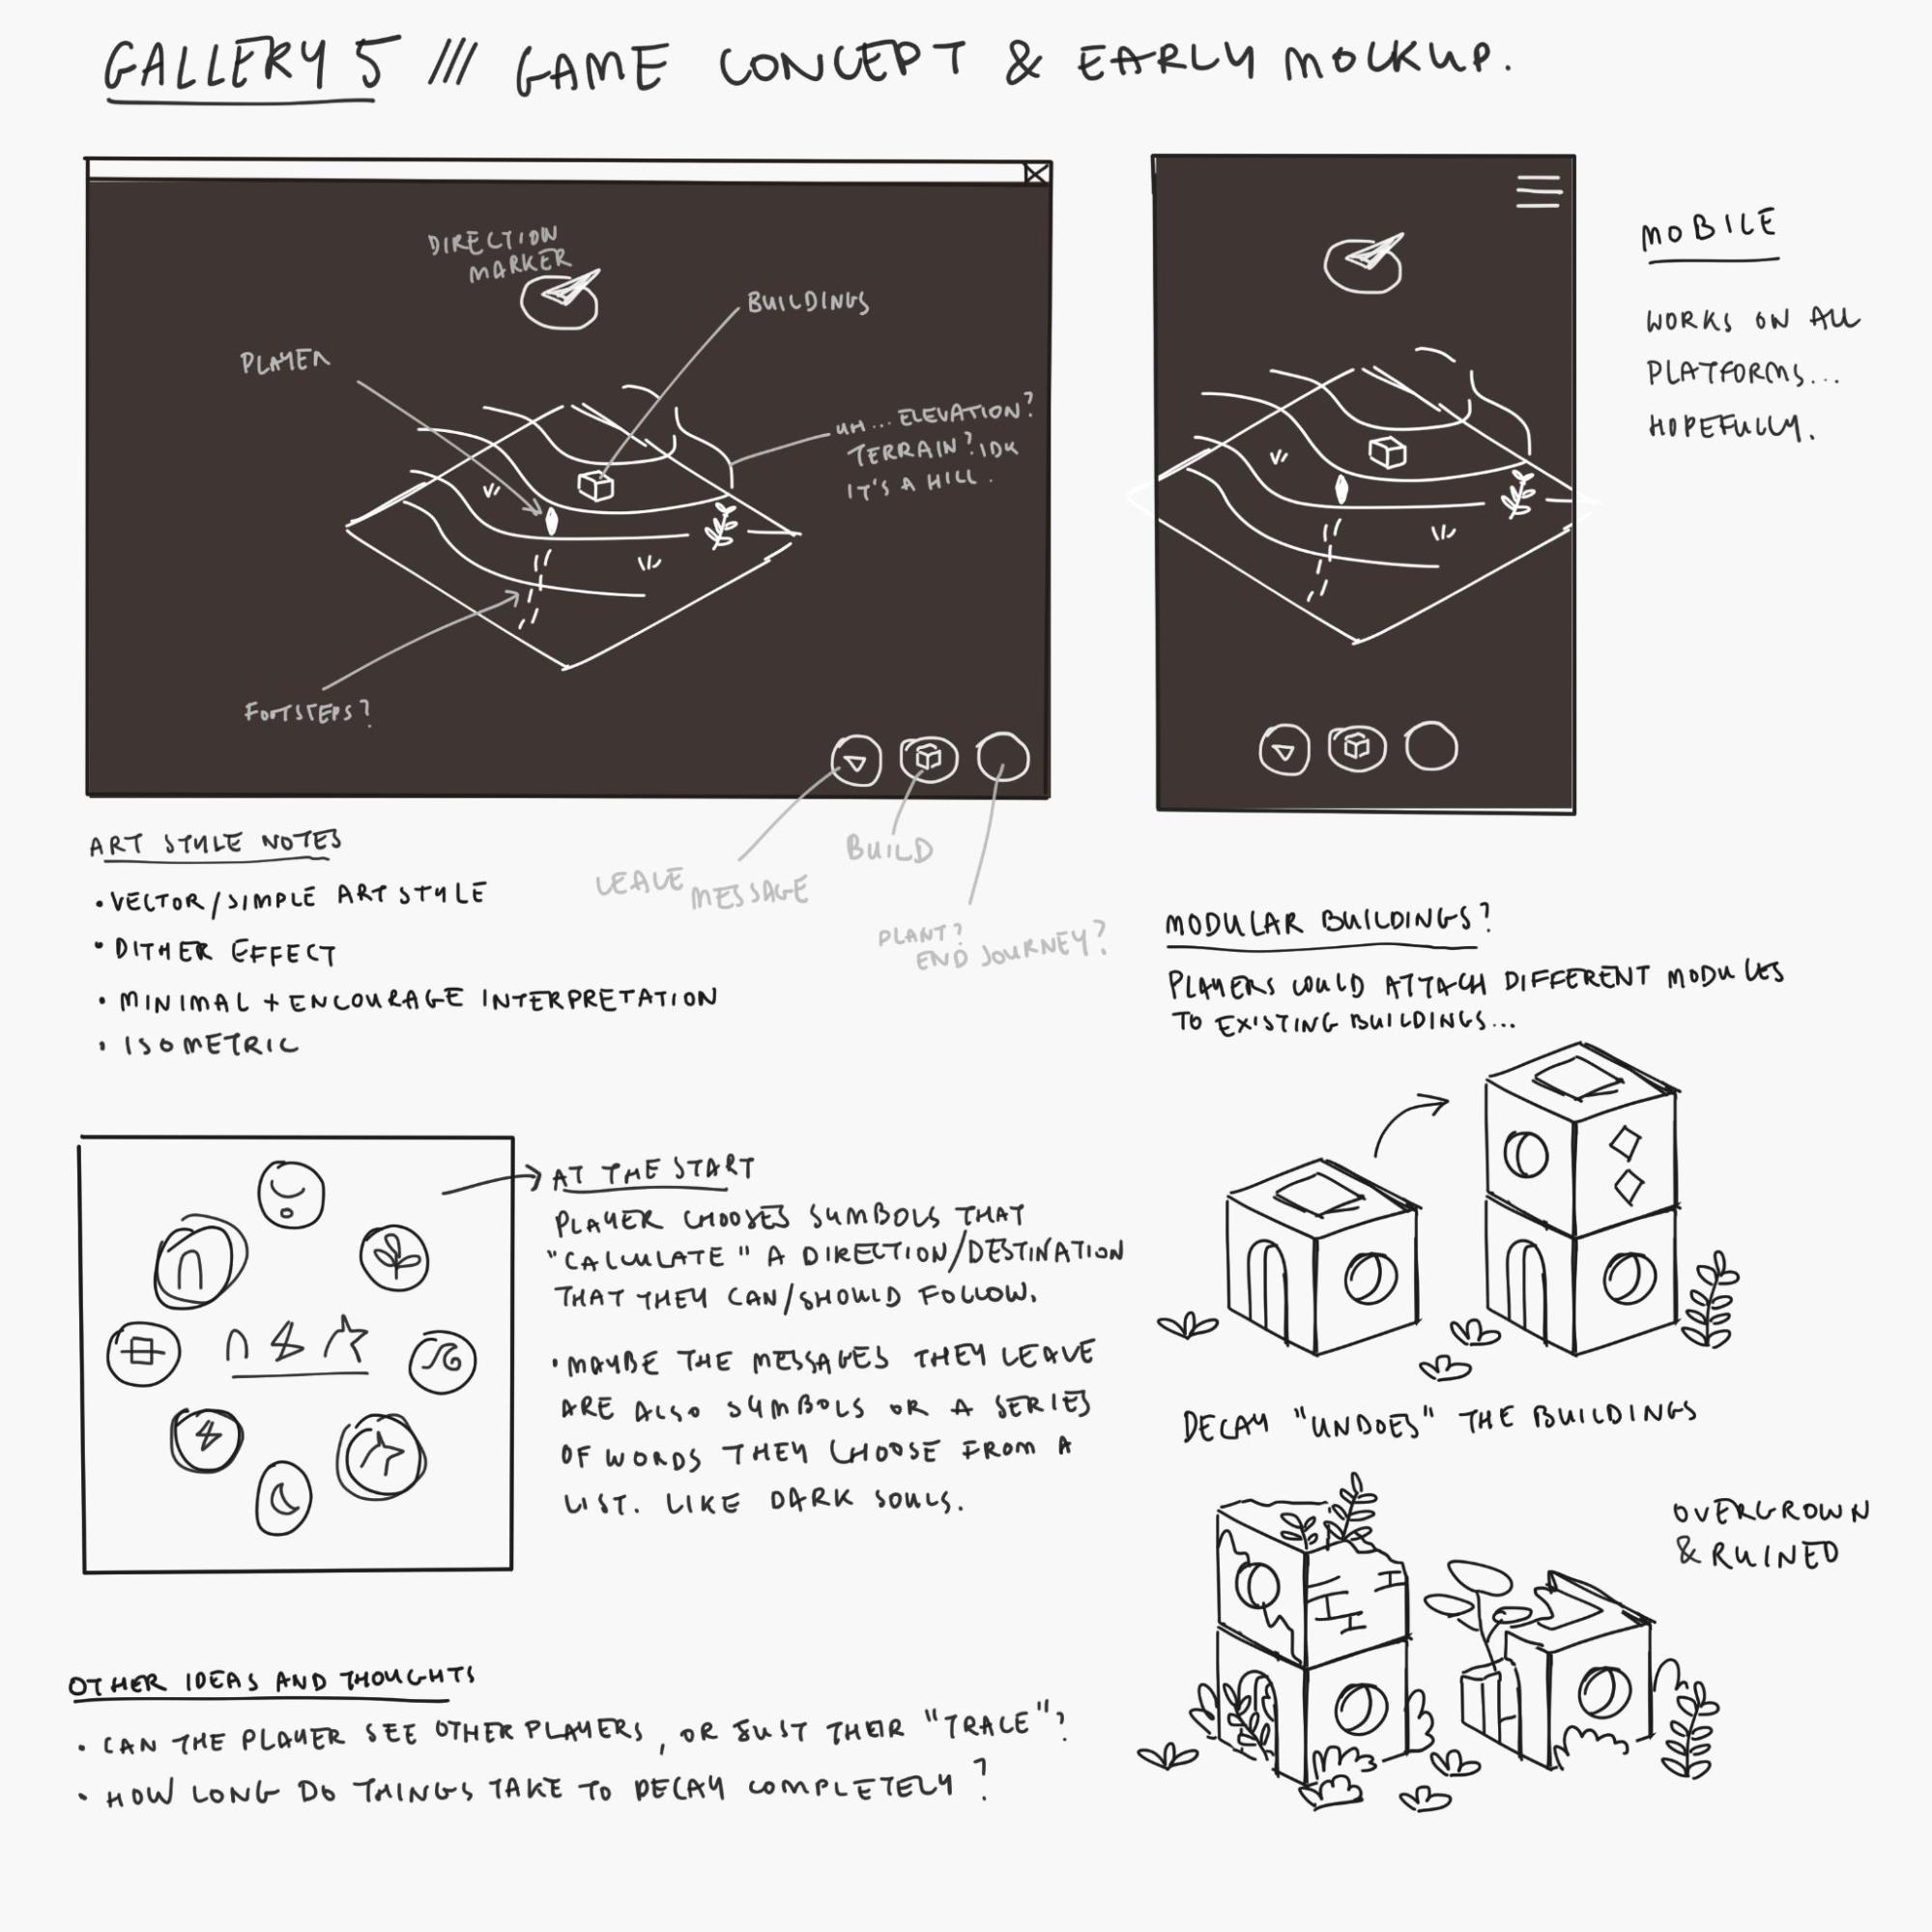 GALLERY 5 /// GAME CONCEPT & EARLY MOCKUP.
DIRECTION
MARKER
BUILDINGS
PLAYER
UH... ELEVATION?
TERRAIN? IDK
IT'S A HILL.
FOOTSTEPS?
LEAVE
MESSAGE
BUILD
PLANT?
END JOURNEY?
MOBILE
WORKS ON ALL
PLATFORMS...
HOPEFULLY.
ART STYLE NOTES
• VECTOR/SIMPLE ART STYLE
• DITHER EFFECT
• MINIMAL + ENCOURAGE INTERPRETATION
• ISOMETRIC
MODULAR BUILDINGS?
PLAYERS COULD ATTACH DIFFERENT MODULES
TO EXISTING BUILDINGS...
AT THE START
PLAYER CHOOSES SYMBOLS THAT
"CALCULATE" A DIRECTION/DESTINATION
THAT THEY CAN/SHOULD FOLLOW.
• MAYBE THE MESSAGES THEY LEAVE
ARE ALSO SYMBOLS OR A SERIES
OF WORDS THEY CHOOSE FROM A
LIST. LIKE DARK SOULS.
DECAY "UNDOES" THE BUILDINGS
OVERGROWN
& RUINED
OTHER IDEAS AND THOUGHTS
• CAN THE PLAYER SEE OTHER PLAYERS, OR JUST THEIR "TRACE"?
• HOW LONG DO THINGS TAKE TO DECAY COMPLETELY?